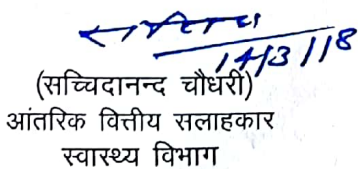 14/3/18
(सच्चिदानन्द चौधरी)
आंतरिक वित्तीय सलाहकार
स्वास्थ्य विभाग